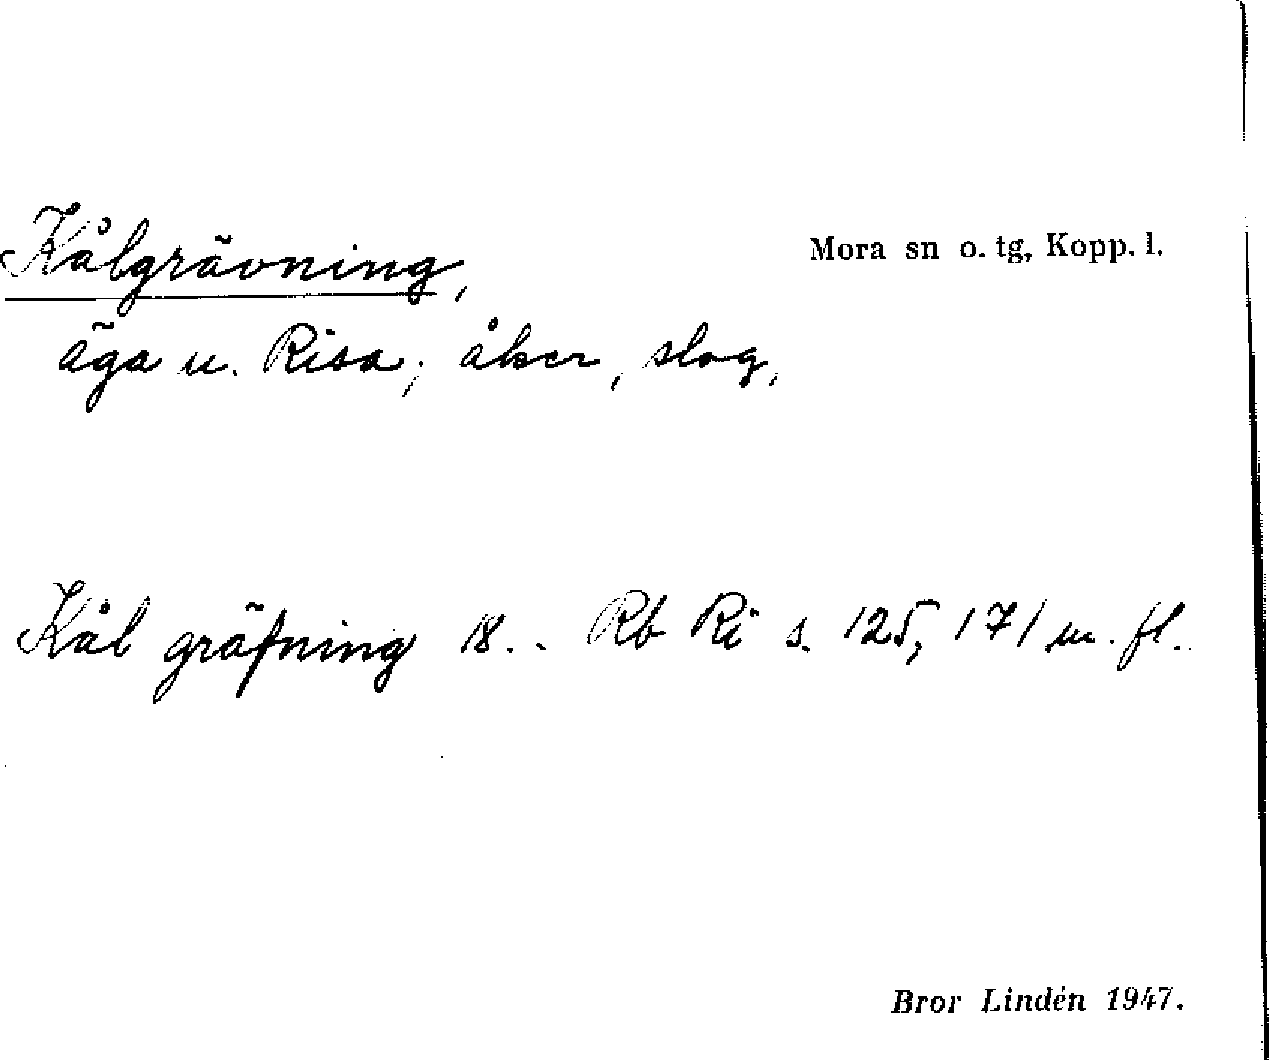 Kålgrävning, Mora sn o. tg, Kopp. l.
äga u. Risa; åker, slog,
Kål gräfning 18.. Rb Ri s. 125, 171 m. fl.
Bror Lindén 1947.